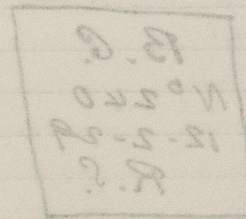 B. G.
Nº 240
12-2-29
R. S.